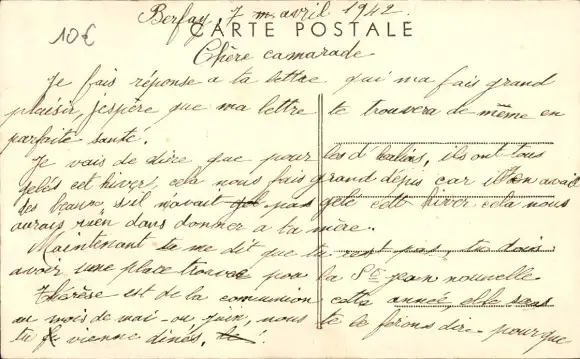 Berfay, 7 m avril 1942
10€
CARTE POSTALE
Chère camarade
Je fais réponse a ta lettre qui ma fais grand
plaisir, j'espère que ma lettre te trouvera de même en
parfaite santé.
Je vais de dire que pour les d'halias, ils ont tous
gelés cet hiver, cela nous fais grand dépis car il en avait
des beaux s'il m'avait pas gelé cette hiver cela nous
aurais rien dans donner a ta mère.
Maintenant tu me dit que tu rest pas, tu dois
avoir une place trouvée pour la St jean nouvelle
Thérèse est de la communion cette année elle sera
au mois de mai ou juin, nous te le ferons dire pour que
tu vienne dinés,